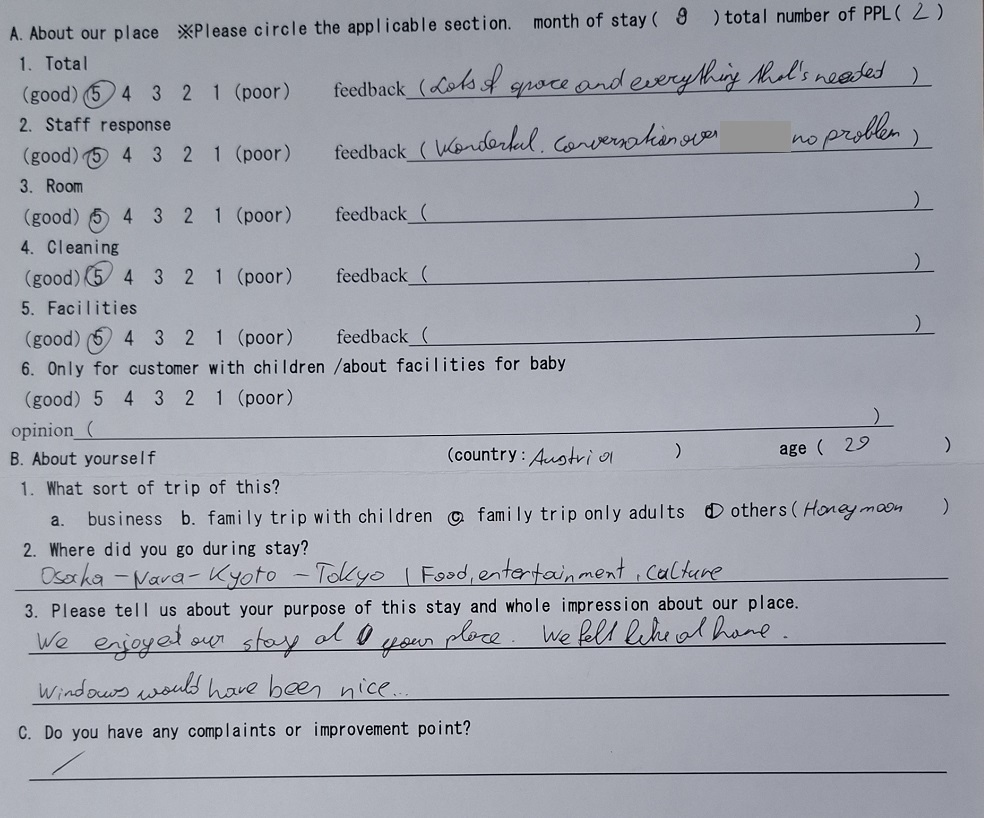 A. About our place ※Please circle the applicable section. month of stay ( 9 ) total number of PPL ( 2 )
1. Total
(good) 5 4 3 2 1 (poor) feedback (Lots of space and everything that's needed )
2. Staff response
(good) 5 4 3 2 1 (poor) feedback ( Wonderful. Conversation over no problem )
3. Room
(good) 5 4 3 2 1 (poor) feedback ( )
4. Cleaning
(good) 5 4 3 2 1 (poor) feedback ( )
5. Facilities
(good) 5 4 3 2 1 (poor) feedback ( )
6. Only for customer with children /about facilities for baby
(good) 5 4 3 2 1 (poor)
opinion ( )
B. About yourself (country: Austria ) age ( 29 )
1. What sort of trip of this?
a. business b. family trip with children c. family trip only adults d others ( Honeymoon )
2. Where did you go during stay?
Osaka - Nara - Kyoto - Tokyo | Food, entertainment, culture
3. Please tell us about your purpose of this stay and whole impression about our place.
We enjoyed our stay at your place. We felt like at home.
Windows would have been nice...
C. Do you have any complaints or improvement point?
/